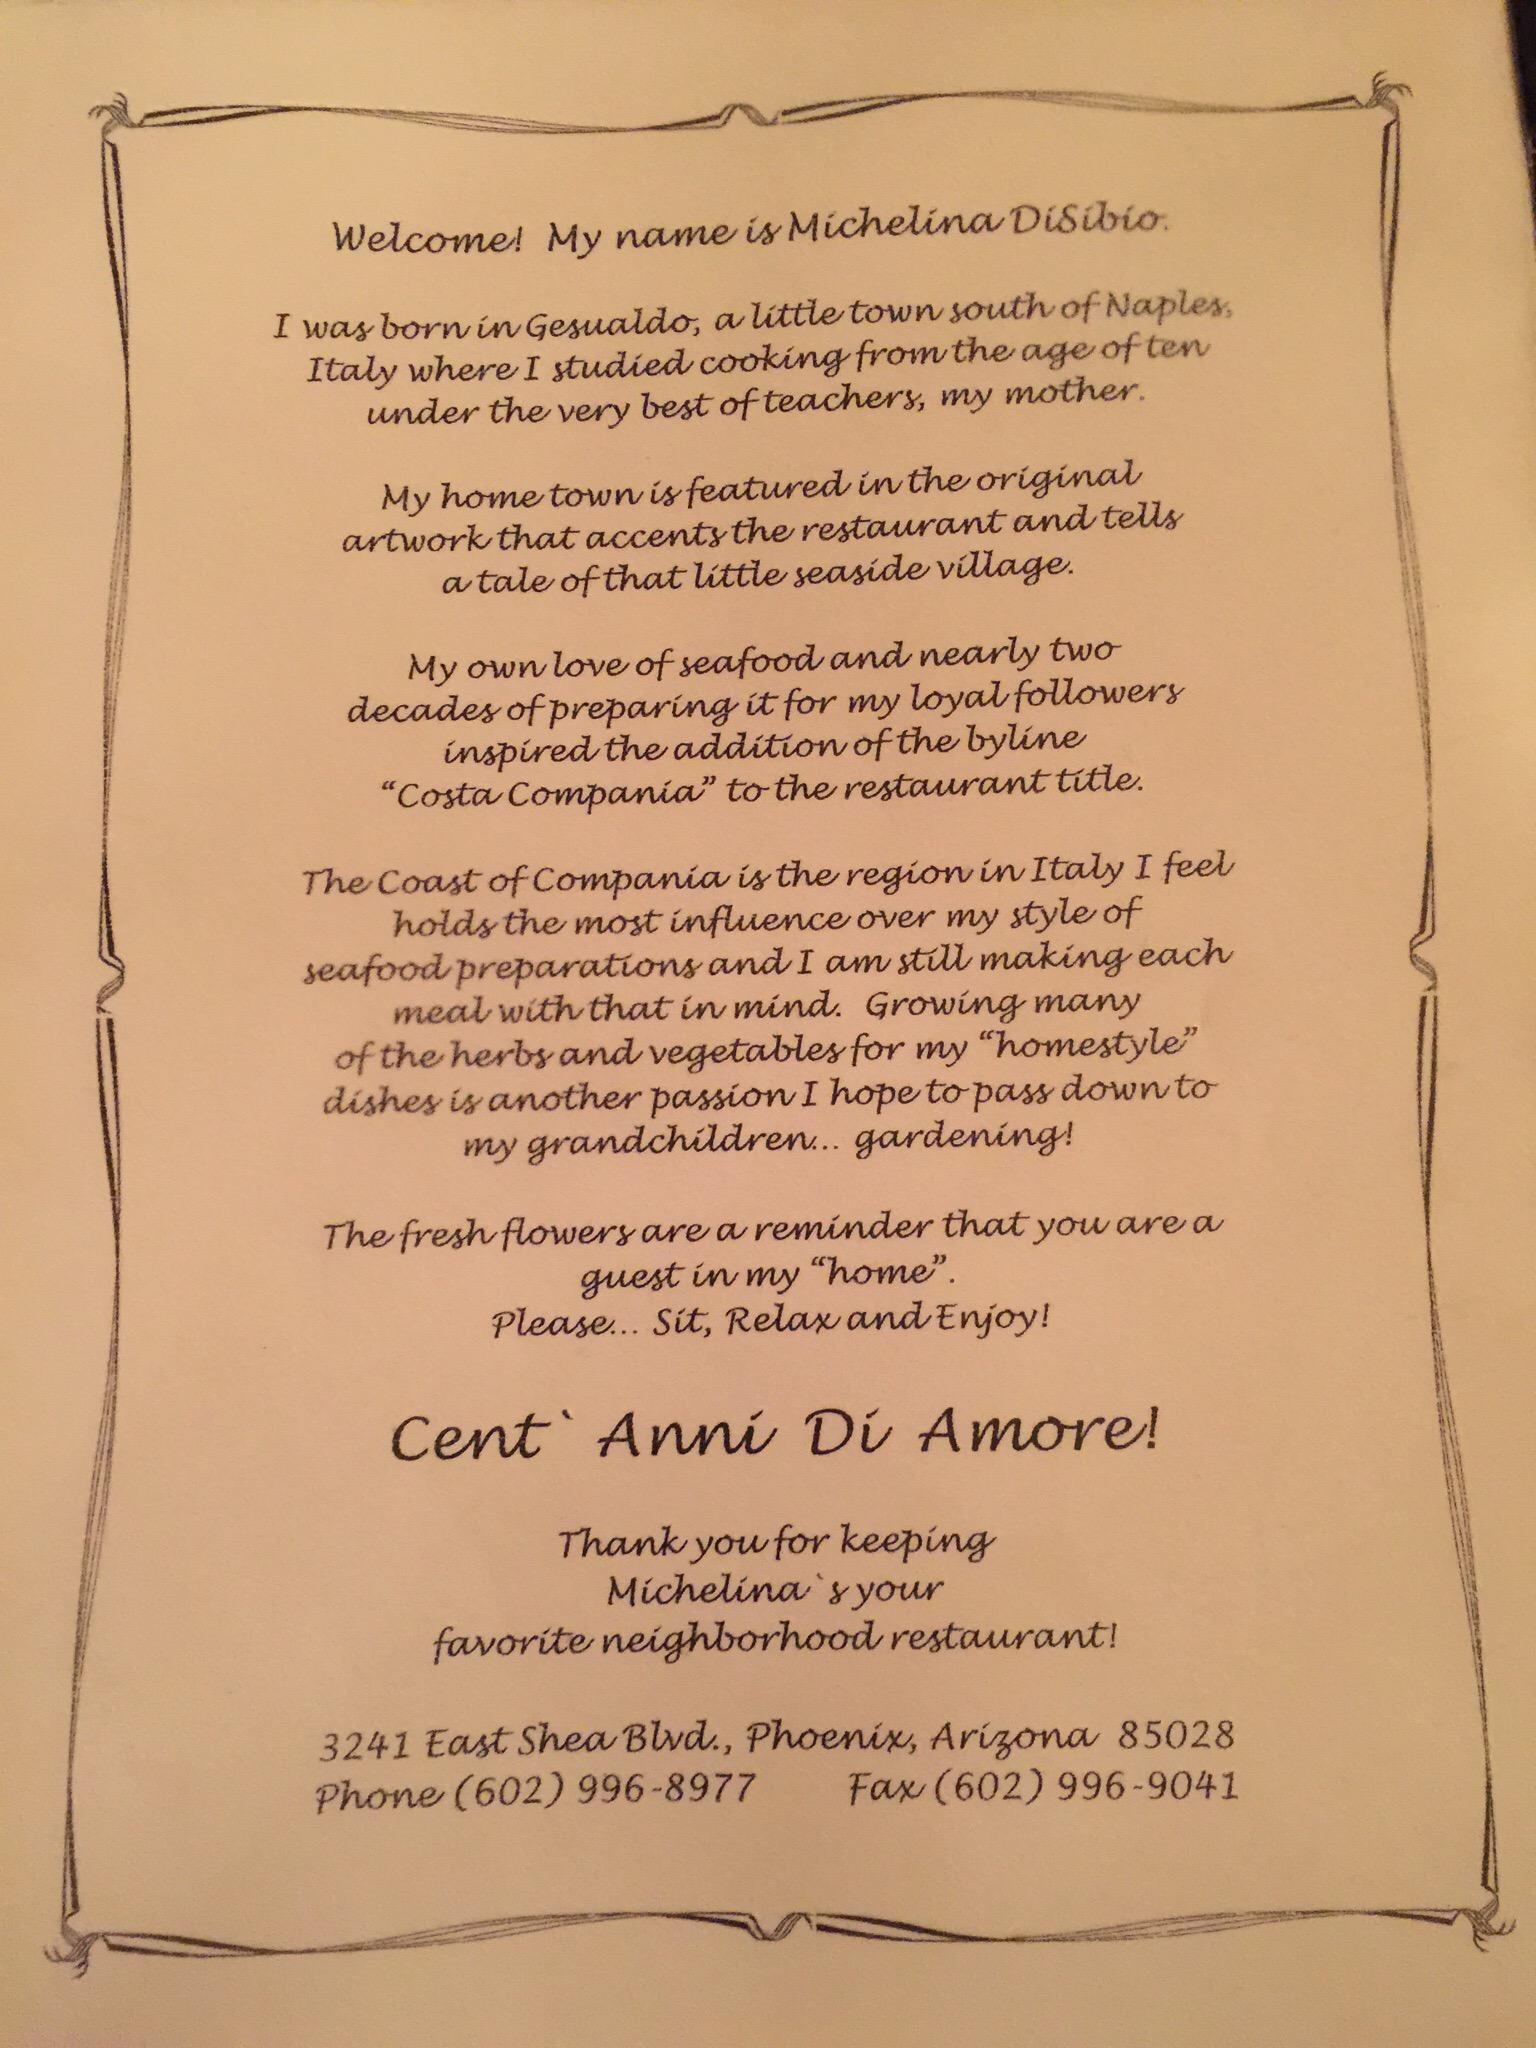 Welcome! My name is Michelina DiSibio.
I was born in Gesualdo, a little town south of Naples,
Italy where I studied cooking from the age of ten
under the very best of teachers, my mother.
My home town is featured in the original
artwork that accents the restaurant and tells
a tale of that little seaside village.
My own love of seafood and nearly two
decades of preparing it for my loyal followers
inspired the addition of the byline
“Costa Compania” to the restaurant title.
The Coast of Compania is the region in Italy I feel
holds the most influence over my style of
seafood preparations and I am still making each
meal with that in mind. Growing many
of the herbs and vegetables for my “homestyle”
dishes is another passion I hope to pass down to
my grandchildren... gardening!
The fresh flowers are a reminder that you are a
guest in my “home”.
Please... Sit, Relax and Enjoy!
Cent` Anni Di Amore!
Thank you for keeping
Michelina`s your
favorite neighborhood restaurant!
3241 East Shea Blvd., Phoenix, Arizona 85028
Phone (602) 996-8977 Fax (602) 996-9041